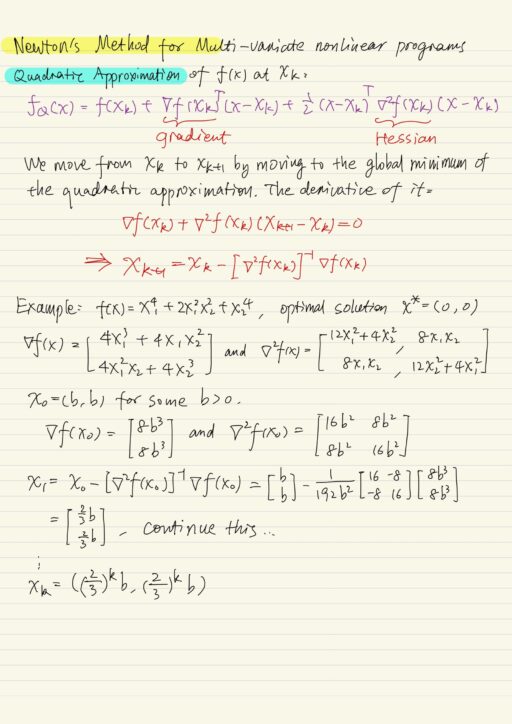 Newton's Method for Multi-variate nonlinear programs
Quadratic Approximation of f(x) at xₖ:
f_Q(x) = f(xₖ) + ∇f(xₖ)ᵀ(x-xₖ) + ½ (x-xₖ)ᵀ ∇²f(xₖ) (x-xₖ)
gradient Hessian
We move from xₖ to xₖ₊₁ by moving to the global minimum of
the quadratic approximation. The derivative of it:
∇f(xₖ) + ∇²f(xₖ)(xₖ₊₁ - xₖ) = 0
⇒ xₖ₊₁ = xₖ - [∇²f(xₖ)]⁻¹ ∇f(xₖ)
Example: f(x) = x₁⁴ + 2x₁²x₂² + x₂⁴, optimal solution x* = (0,0)
∇f(x) = [4x₁³ + 4x₁x₂²; 4x₁²x₂ + 4x₂³] and ∇²f(x) = [12x₁² + 4x₂², 8x₁x₂; 8x₁x₂, 12x₂² + 4x₁²]
x₀ = (b,b) for some b>0.
∇f(x₀) = [8b³; 8b³] and ∇²f(x₀) = [16b² 8b²; 8b² 16b²]
x₁ = x₀ - [∇²f(x₀)]⁻¹ ∇f(x₀) = [b; b] - 1/(192b²) [16 -8; -8 16] [8b³; 8b³]
= [⅔b; ⅔b], continue this...
⋮
xₖ = ((2/3)ᵏ b, (2/3)ᵏ b)